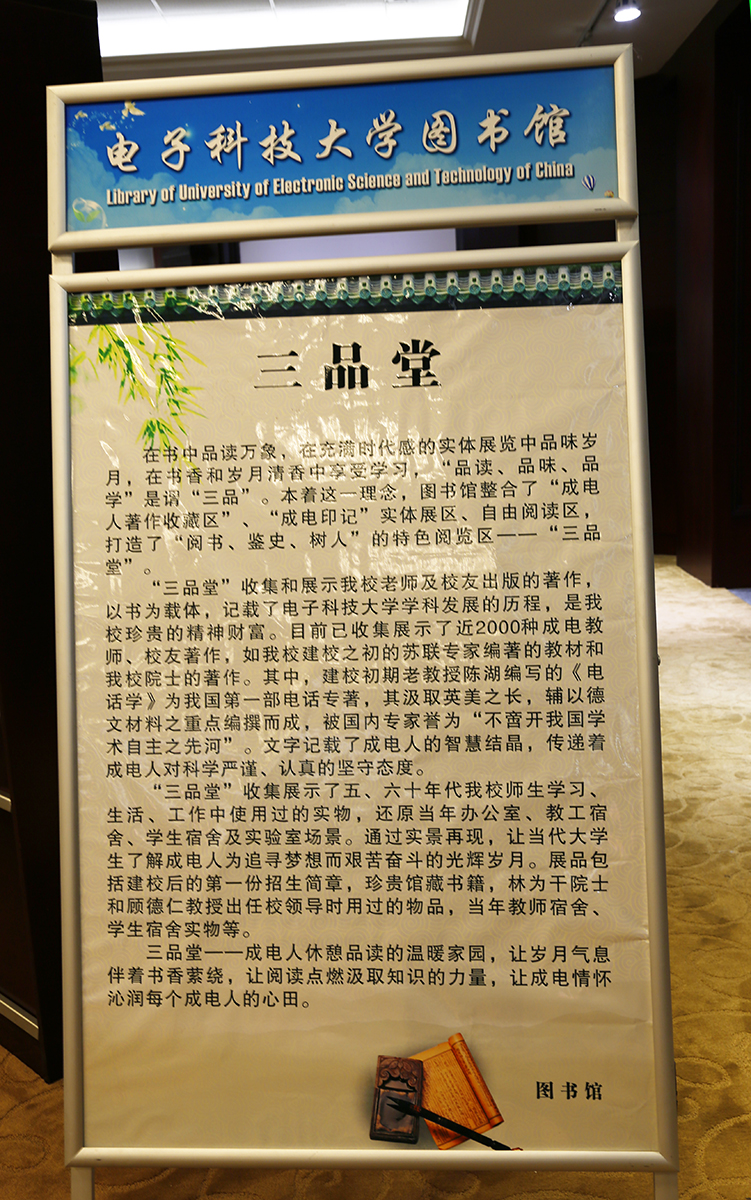 电子科技大学图书馆
Library of University of Electronic Science and Technology of China
三品堂
在书中品读万象，在充满时代感的实体展览中品味岁
月，在书香和岁月清香中享受学习，“品读、品味、品
学”是谓“三品”。本着这一理念，图书馆整合了“成电
人著作收藏区”、“成电印记”实体展区、自由阅读区，
打造了“阅书、鉴史、树人”的特色阅览区——“三品
堂”。
“三品堂”收集和展示我校老师及校友出版的著作，
以书为载体，记载了电子科技大学学科发展的历程，是我
校珍贵的精神财富。目前已收集展示了近2000种成电教
师、校友著作，如我校建校之初的苏联专家编著的教材和
我校院士的著作。其中，建校初期老教授陈湖编写的《电
话学》为我国第一部电话专著，其汲取英美之长，辅以德
文材料之重点编撰而成，被国内专家誉为“不啻开我国学
术自主之先河”。文字记载了成电人的智慧结晶，传递着
成电人对科学严谨、认真的坚守态度。
“三品堂”收集展示了五、六十年代我校师生学习、
生活、工作中使用过的实物，还原当年办公室、教工宿
舍、学生宿舍及实验室场景。通过实景再现，让当代大学
生了解成电人为追寻梦想而艰苦奋斗的光辉岁月。展品包
括建校后的第一份招生简章，珍贵馆藏书籍，林为干院士
和顾德仁教授出任校领导时用过的物品，当年教师宿舍、
学生宿舍实物等。
三品堂——成电人休憩品读的温暖家园，让岁月气息
伴着书香萦绕，让阅读点燃汲取知识的力量，让成电情怀
沁润每个成电人的心田。
图书馆